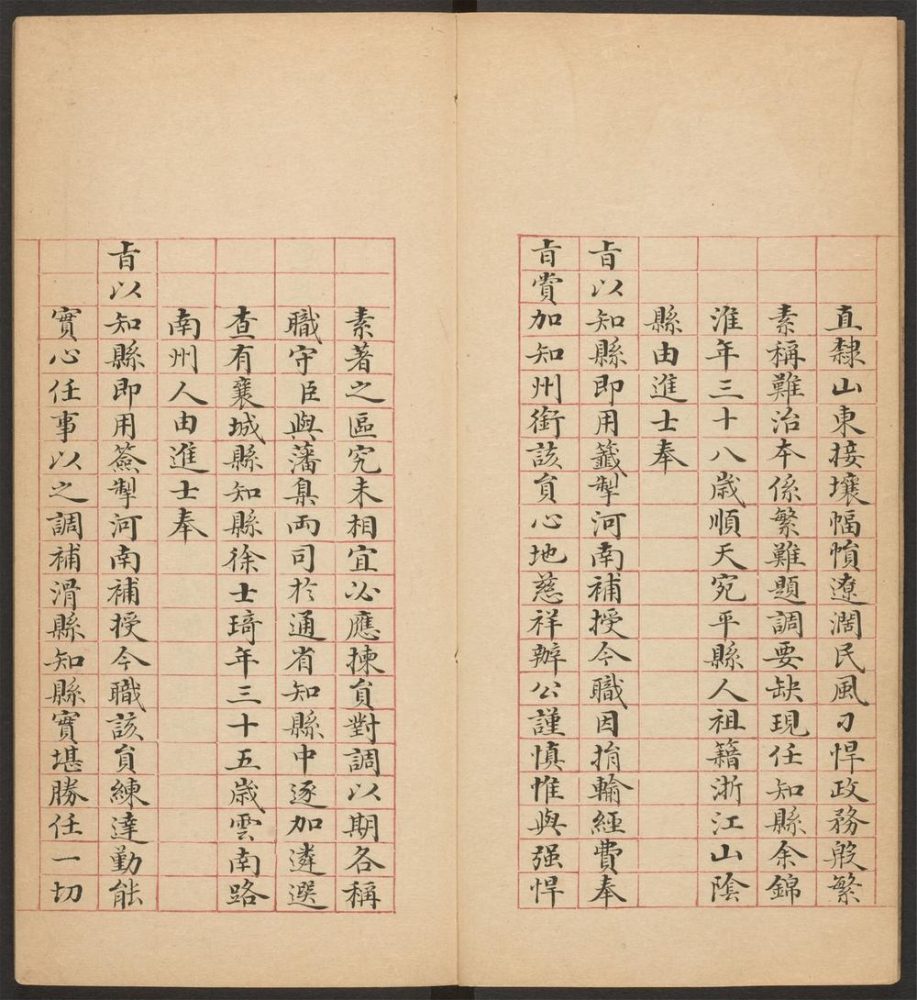 直隸山東接壤幅幀遼濶民風刁悍政務殷繁
素稱難治本係繁難題調要缺現任知縣余錦
淮年三十八歲順天宛平縣人祖籍浙江山陰
縣由進士奉
旨以知縣即用籤掣河南補授今職因捐輸經費奉
旨賞加知州銜該員心地慈祥辦公謹慎惟與强悍
素著之區究未相宜必應揀員對調以期各稱
職守臣與藩臬兩司於通省知縣中逐加遴選
查有襄城縣知縣徐士琦年三十五歲雲南路
南州人由進士奉
旨以知縣即用簽掣河南補授今職該員練達勤能
實心任事以之調補滑縣知縣實堪勝任一切